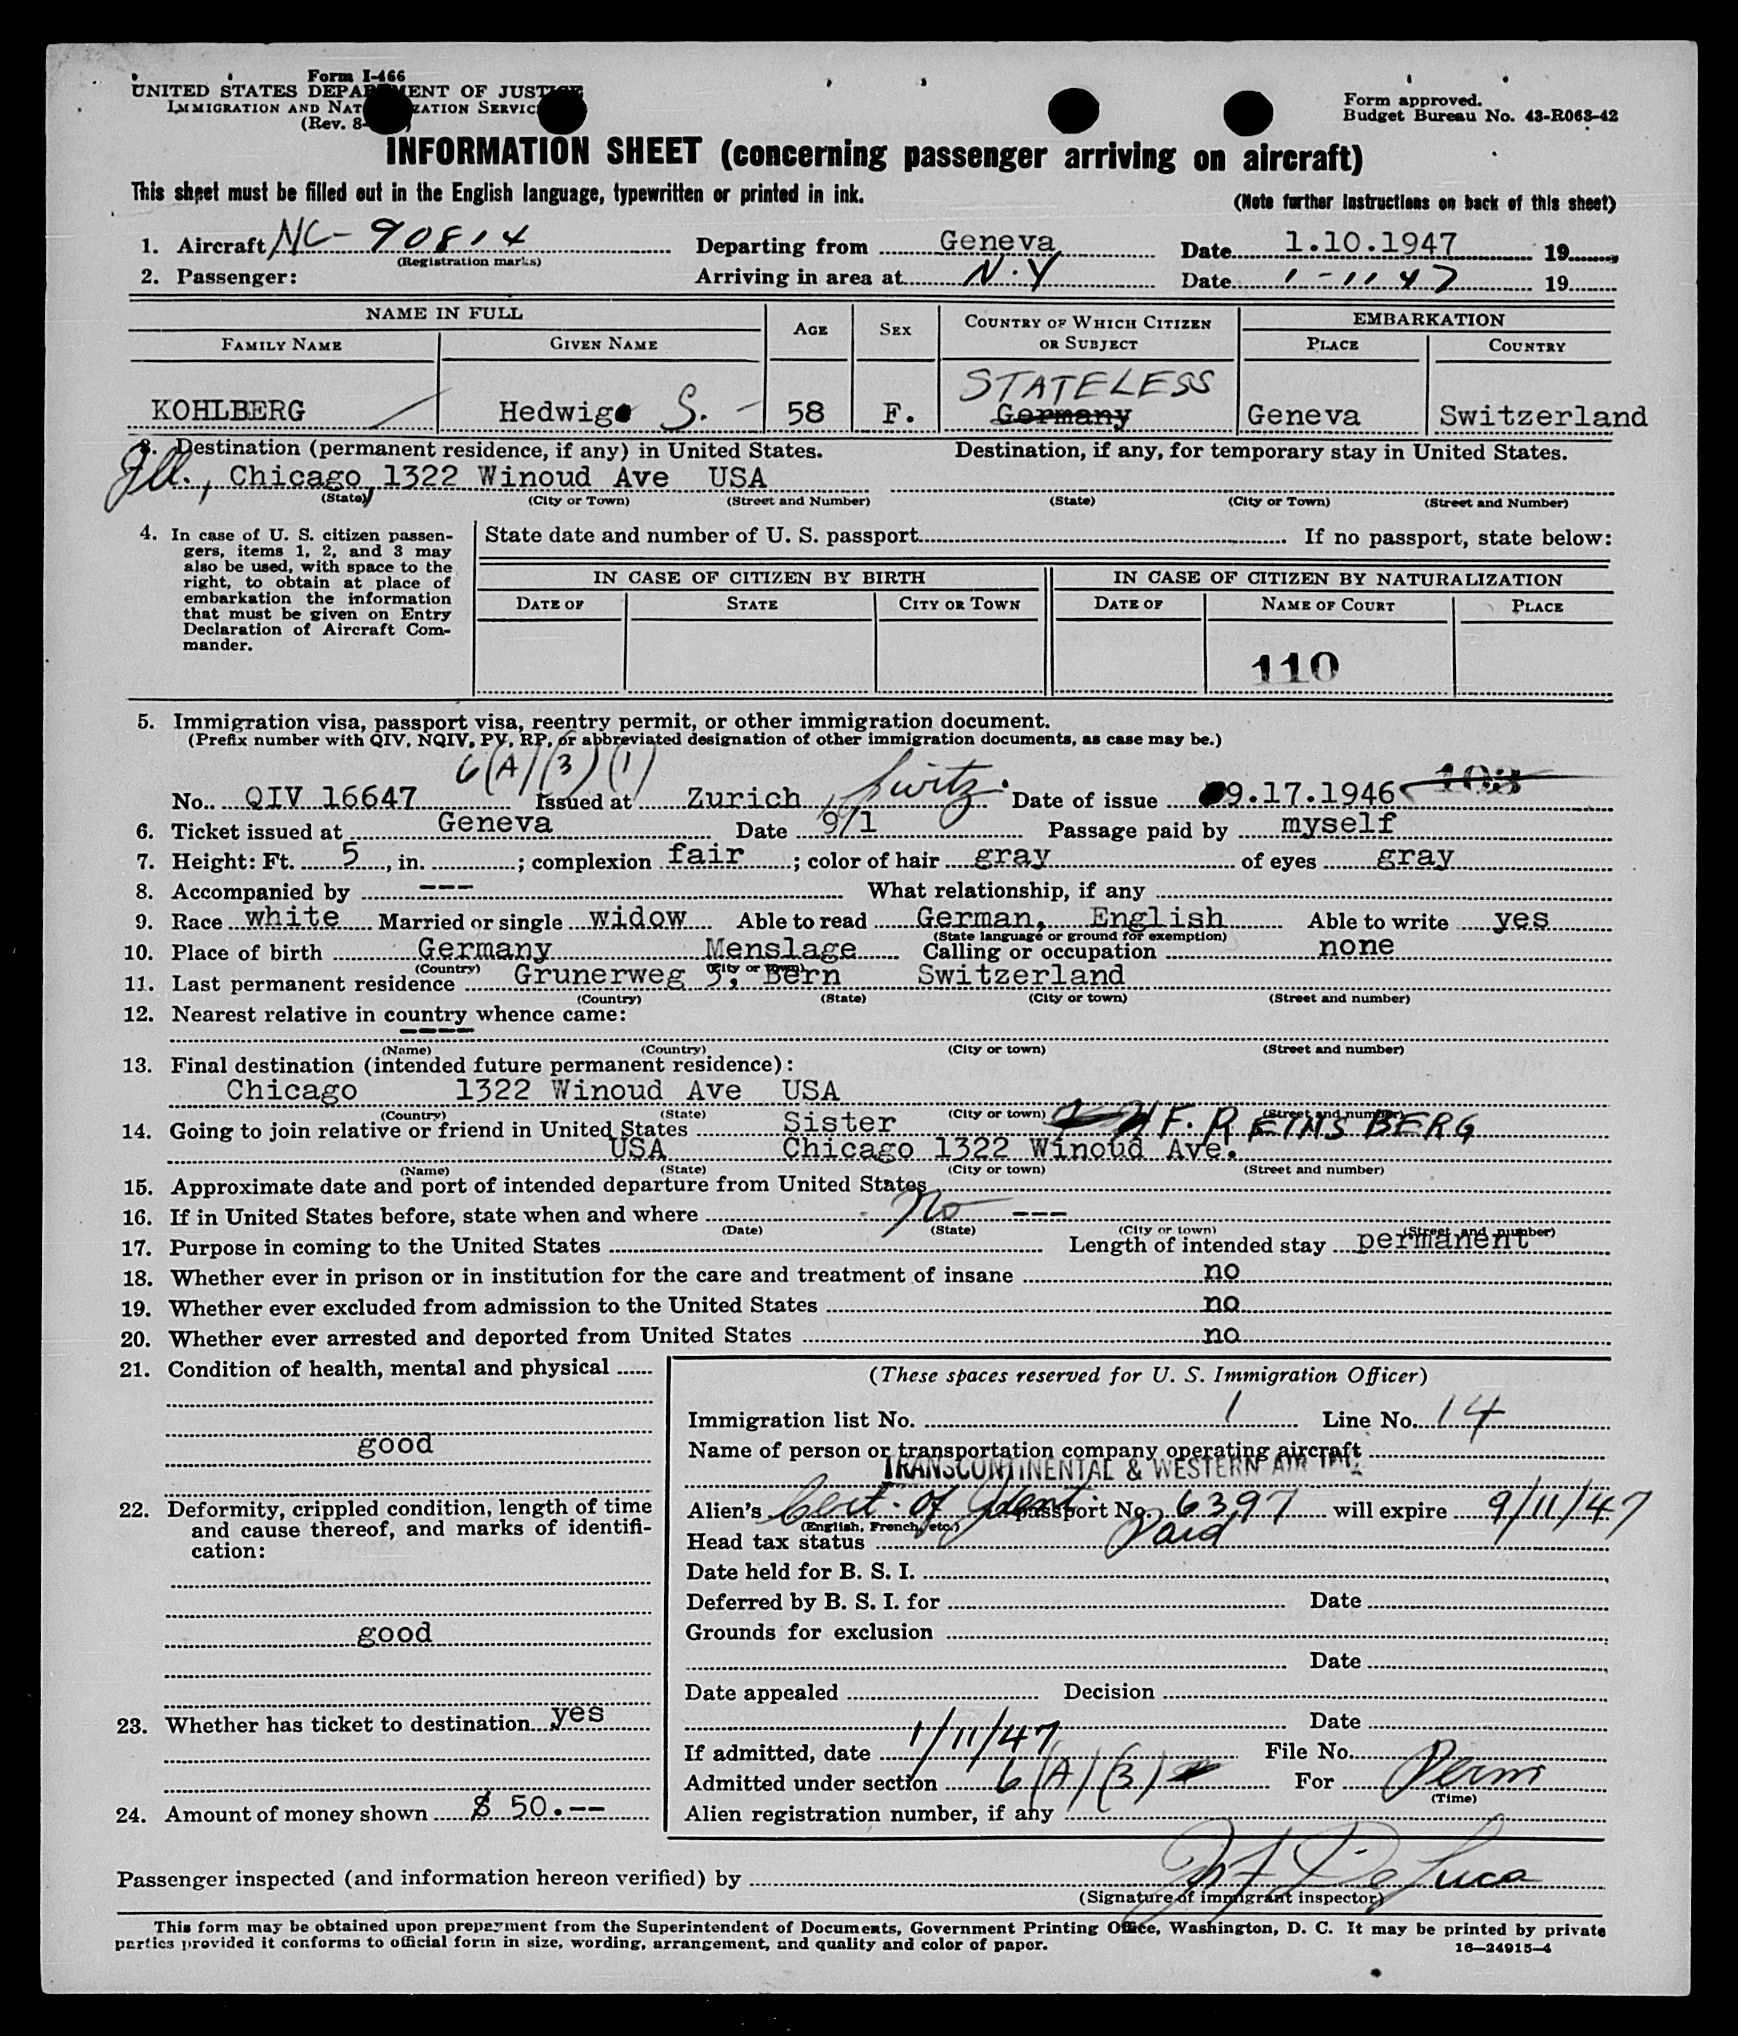 Form I-466
UNITED STATES DEPARTMENT OF JUSTICE
IMMIGRATION AND NATURALIZATION SERVICE
(Rev. 8-
Form approved.
Budget Bureau No. 43-R063-42
INFORMATION SHEET (concerning passenger arriving on aircraft)
This sheet must be filled out in the English language, typewritten or printed in ink.
(Note further instructions on back of this sheet)
1. Aircraft NC-90814 Departing from Geneva Date 1.10.1947 19
(Registration marks)
2. Passenger: Arriving in area at N.Y Date 1-11 47 19
NAME IN FULL AGE SEX COUNTRY OF WHICH CITIZEN OR SUBJECT EMBARKATION
FAMILY NAME GIVEN NAME PLACE COUNTRY
STATELESS
KOHLBERG Hedwig S. 58 F. Germany Geneva Switzerland
3. Destination (permanent residence, if any) in United States. Destination, if any, for temporary stay in United States.
Ill., Chicago 1322 Winoud Ave USA
(State) (City or Town) (Street and Number) (State) (City or Town) (Street and Number)
4. In case of U. S. citizen passengers, items 1, 2, and 3 may also be used, with space to the right, to obtain at place of embarkation the information that must be given on Entry Declaration of Aircraft Commander.
State date and number of U. S. passport If no passport, state below:
IN CASE OF CITIZEN BY BIRTH IN CASE OF CITIZEN BY NATURALIZATION
DATE OF STATE CITY OR TOWN DATE OF NAME OF COURT PLACE
110
5. Immigration visa, passport visa, reentry permit, or other immigration document.
(Prefix number with QIV, NQIV, PV, RP, or abbreviated designation of other immigration documents, as case may be.)
6(A)(3)(1)
No. QIV 16647 Issued at Zurich Switz. Date of issue 9.17.1946 103
6. Ticket issued at Geneva Date 9/1 Passage paid by myself
7. Height: Ft. 5, in. ; complexion fair; color of hair gray of eyes gray
8. Accompanied by --- What relationship, if any
9. Race white Married or single widow Able to read German, English Able to write yes
(State language or ground for exemption)
10. Place of birth Germany Menslage Calling or occupation none
(Country) (City or town)
11. Last permanent residence Grunerweg 5, Bern Switzerland
(Country) (State) (City or town) (Street and number)
12. Nearest relative in country whence came:
----
(Name) (Country) (City or town) (Street and number)
13. Final destination (intended future permanent residence):
Chicago 1322 Winoud Ave USA
(Country) (State) (City or town) (Street and number)
14. Going to join relative or friend in United States Sister F. REINSBERG
USA Chicago 1322 Winoud Ave.
(Name) (State) (City or town) (Street and number)
15. Approximate date and port of intended departure from United States
16. If in United States before, state when and where No ---
(Date) (State) (City or town) (Street and number)
17. Purpose in coming to the United States Length of intended stay permanent
18. Whether ever in prison or in institution for the care and treatment of insane no
19. Whether ever excluded from admission to the United States no
20. Whether ever arrested and deported from United States no
21. Condition of health, mental and physical
good
22. Deformity, crippled condition, length of time and cause thereof, and marks of identification:
good
23. Whether has ticket to destination yes
24. Amount of money shown $ 50.--
(These spaces reserved for U. S. Immigration Officer)
Immigration list No. 1 Line No. 14
Name of person or transportation company operating aircraft
TRANSCONTINENTAL & WESTERN AIR INC.
Alien's Cert. of Ident. passport No. 6397 will expire 9/11/47
(English, French, etc.)
Head tax status Paid
Date held for B. S. I.
Deferred by B. S. I. for Date
Grounds for exclusion
Date
Date appealed Decision
Date
If admitted, date 1/11/47 File No.
Admitted under section 6(A)(3) For Perm
(Time)
Alien registration number, if any
Passenger inspected (and information hereon verified) by De Luca
(Signature of immigrant inspector)
This form may be obtained upon prepayment from the Superintendent of Documents, Government Printing Office, Washington, D. C. It may be printed by private
parties provided it conforms to official form in size, wording, arrangement, and quality and color of paper.
16-24915-4